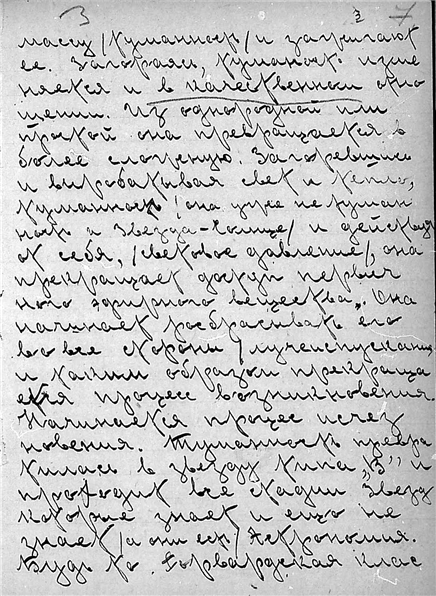 3 3 7
массу /туманность/ и зажигают
ее. Загораясь, туманность изме
няется и в качественном отно
шении. Из однородной или
простой она превращается в
более сложную. Загоревшись
и вырабатывая свет и тепло,
туманность /она уже не туман
ность а звезда-Солнце/ и действуя
от себя, /световое давление/, она
прекращает доступ первич
ного эфирного вещества. Она
начинает разбрасывать его
во все стороны /лучеиспускание/
и таким образом прекраща
ется процесс возникновения.
Начинается процес исчез
новения. Туманность превра
тилась в звезду типа „В" и
проходит все стадии звезд
которые знает и ещо не
знает /а они есть/ Астрономия.
Будь то Гарвардская клас